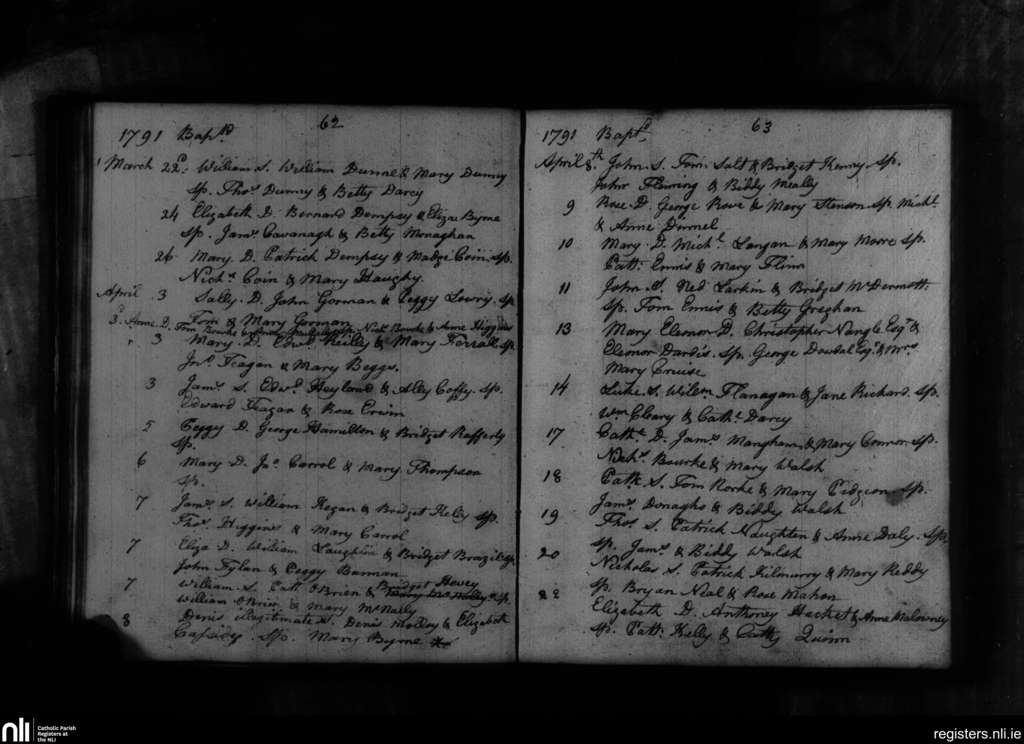 62
1791 Bapsd
March 22d William S. William Dunne & Mary Dunny
Sp. Thos Dunny & Betty Darcy
24 Elizabeth D. Bernard Dempsy & Eliza Byrne
Sp. Jams Cavanagh & Betty Monaghan
26 Mary. D. Patrick Dempsy & Madge Coin. Sp.
Nichs Coin & Mary Haughy.
April 3 Sally. D. John Gorman & Peggy Lowry. Sp
Tom & Mary Gorman
3d. Anne. D. Tom Bourke Sp. Nichs Bourke & Anne Higgins
3 Mary. D. Edwd Reilly & Mary Ferrall Sp.
Jno Feagan & Mary Beggs.
3 Jams S. Edwd Heyland & Ally Coffy. Sp.
Edward Feagan & Rose Erwin
5 Peggy D. George Hamilton & Bridget Rafferty
Sp.
6 Mary D. Jno Carrol & Mary Thompson
Sp.
7 Jams S. William Hegan & Bridget Kelly Sp.
Thos Higgins & Mary Carrol
7 Eliza D. William Laughlin & Bridget Brazil Sp.
John Tylan & Peggy Bannan
7 William S. Patt O'Brien & Bridget Hevey Sp.
William O'Brien & Mary McNally
8 Denis illegitimate S. Denis Molloy & Elizabeth
Cassidy Sp. Mary Byrne
63
1791 Baptd
April 8th John. S. Tom Salt & Bridget Henry. Sp.
John Fleming & Biddy Mealy
9 Rose D. George Rowe & Mary Stenson Sp. Michl
& Anne Dunnel
10 Mary D. Michl Langan & Mary Moore Sp.
Patt: Ennis & Mary Flinn
11 John. S. Ned Larkin & Bridget McDermott.
Sp. Tom Ennis & Betty Greghan
13 Mary Elenor D. Christopher Nangle Esqr &
Elenor Dardis. Sp. George Dowdal Esqr & Mrs
Mary Cruise
14 Luke S. Wilm Flanagan & Jane Richard Sp.
Wm Cleary & Cathe Darcy
17 Cathe D. Jams Mangham & Mary Connor Sp.
Nichs Bourke & Mary Walsh
18 Patk S. Tom Rorke & Mary Pidgeon Sp.
Jams Donagho & Biddy Walsh
19 Thos S. Patrick Naughten & Anne Daly. Sp.
Sp. Jams & Biddy Walsh
20 Nicholas S. Patrick Kilmurry & Mary Reddy
Sp. Bryan Neal & Rose Mahon
22 Elizabeth D. Anthoney Hacket & Anne Malowney
Sp. Patt: Kelly & Catty Quinn
nli
Catholic Parish
Registers at
the NLI
registers.nli.ie